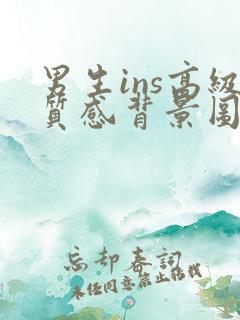 男生ins高级
质感背景图
忘却春词
未经同意禁止转载